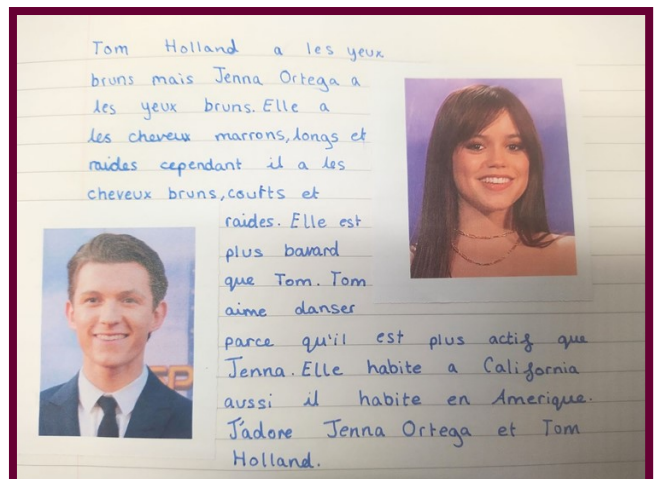 Tom Holland a les yeux
bruns mais Jenna Ortega a
les yeux bruns. Elle a
les cheveux marrons, longs et
raides cependant il a les
cheveux bruns, courts et
raides. Elle est
plus bavard
que Tom. Tom
aime danser
parce qu'il est plus actif que
Jenna. Elle habite a California
aussi il habite en Amerique.
J'adore Jenna Ortega et Tom
Holland.